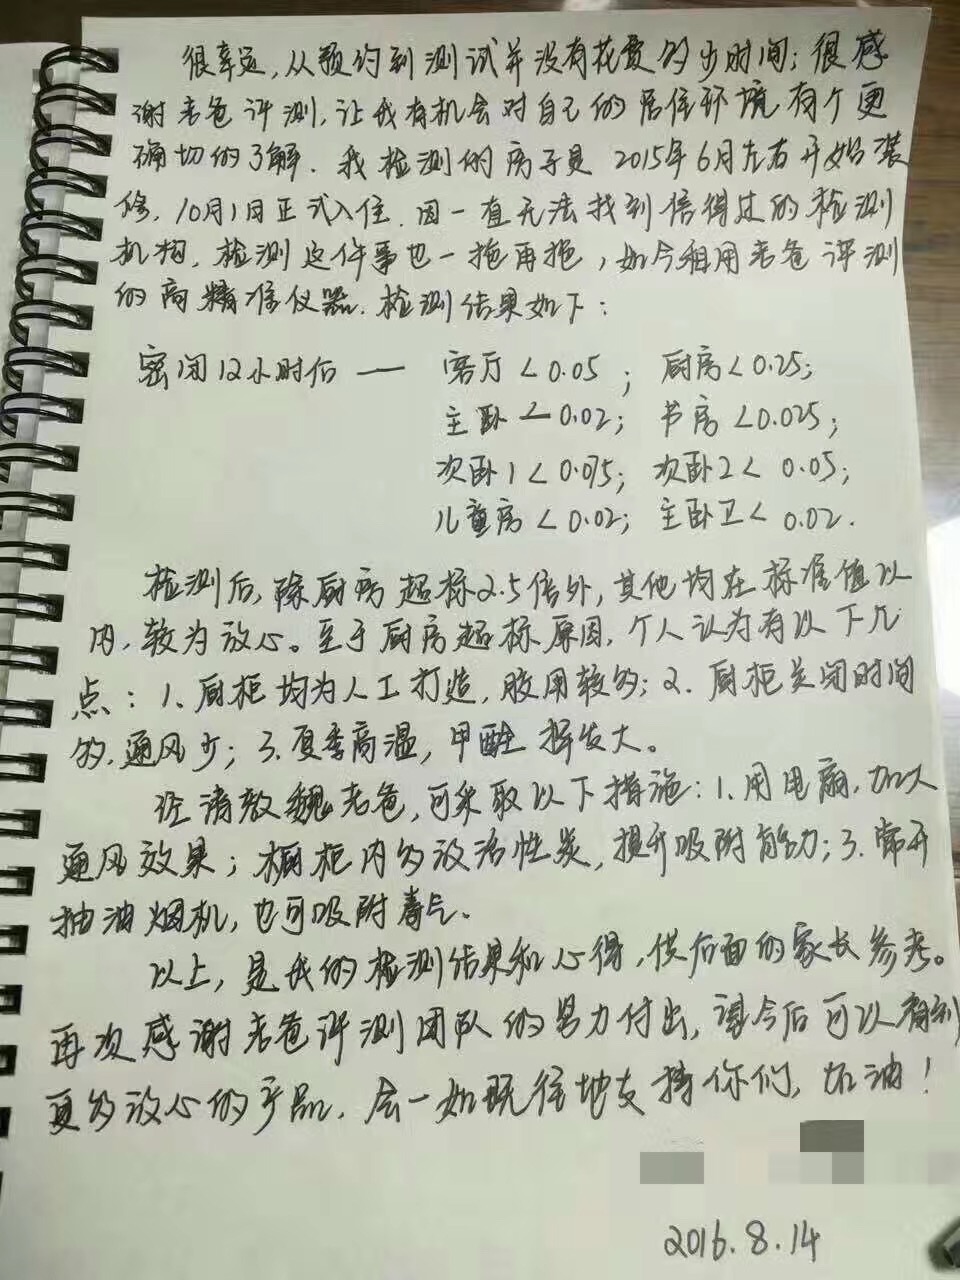 很幸运,从预约到测试并没有花费多少时间;很感
谢老爸评测,让我有机会对自己的居住环境有个更
确切的了解.我检测的房子是2015年6月左右开始装
修,10月1日正式入住.因一直无法找到信得过的检测
机构,检测这件事也一拖再拖,如今租用老爸评测
的高精准仪器.检测结果如下:
密闭12小时后 — 客厅<0.05; 厨房<0.25;
主卧<0.02; 书房<0.025;
次卧1<0.075; 次卧2<0.05;
儿童房<0.02; 主卧卫<0.02.
检测后,除厨房超标2.5倍外,其他均在标准值以
内,较为放心。至于厨房超标原因,个人认为有以下几
点:1、厨柜均为人工打造,胶用较多;2.厨柜关闭时间
多,通风少;3.夏季高温,甲醛挥发大。
经请教魏老爸,可采取以下措施:1.用电扇,加大
通风效果;橱柜内多放活性炭,提升吸附能力;3.常开
抽油烟机,也可吸附毒气。
以上,是我的检测结果和心得,供后面的家长参考。
再次感谢老爸评测团队的努力付出,让今后可以看到
更多放心的产品.会一如既往地支持你们,加油!
2016.8.14